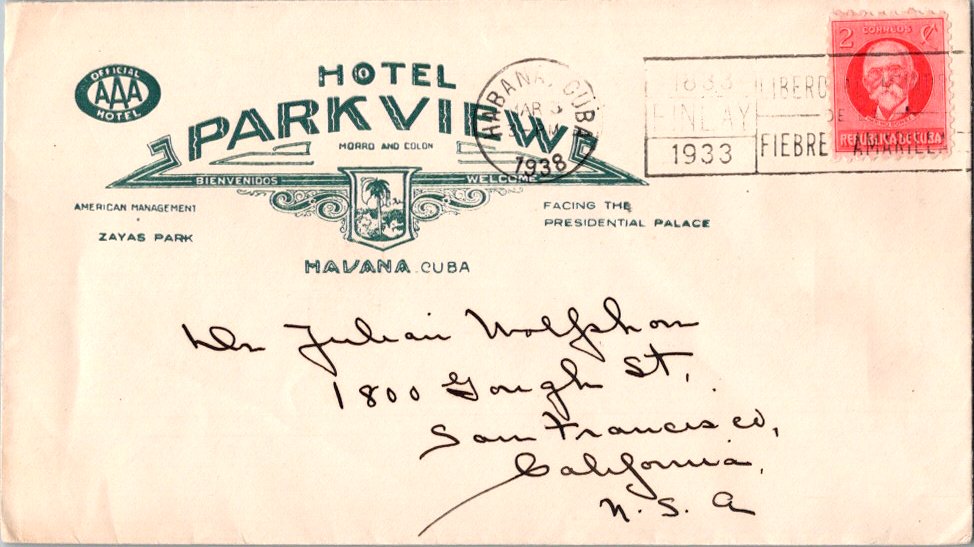 OFFICIAL
AAA
HOTEL
HOTEL
PARKVIEW
MORRO AND COLON
BIENVENIDOS
WELCOME
AMERICAN MANAGEMENT
ZAYAS PARK
FACING THE
PRESIDENTIAL PALACE
HAVANA. CUBA
HABANA, CUBA
MAR 3
PM
1938
1833
FINLAY
1933
LIBERO
DE
FIEBRE AMARILLA
2 CORREOS ¢
REPUBLICA DE CUBA
Dr Julian Wolfsohn
1800 Gough St,
San Francisco,
California,
U. S. A